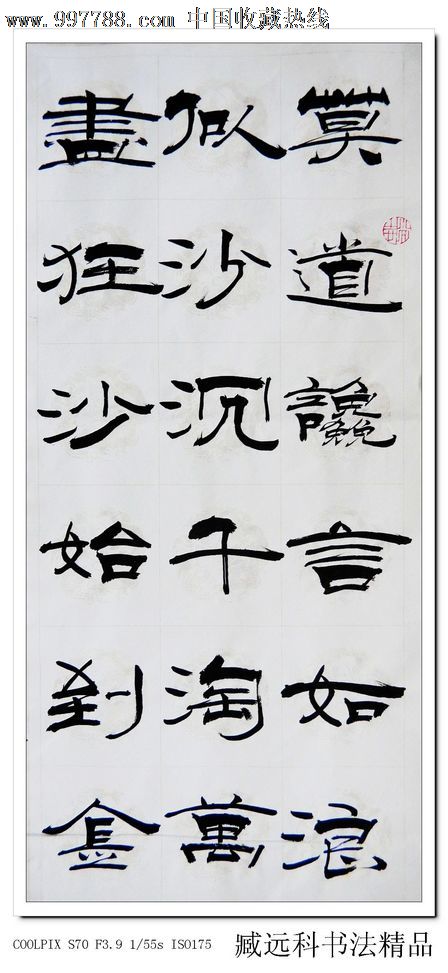 www.997788.com 中国收藏热线
莫道讒言如浪
似沙沉千淘萬
盡狂沙始到金
COOLPIX S70 F3.9 1/55s ISO175
臧远科书法精品